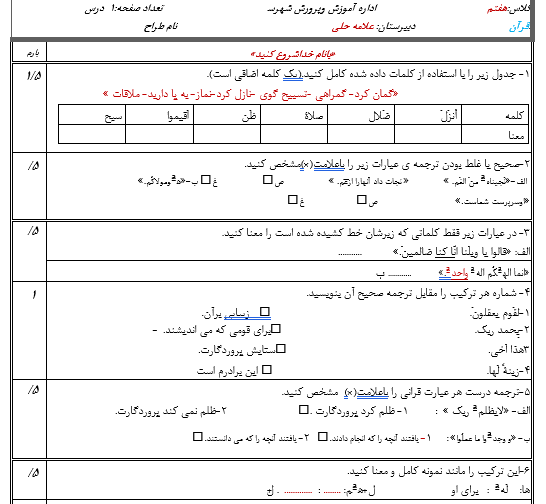 کلاس:هفتم اداره آموزش وپرورش شهرس تعداد صفحه:۱ درس
قرآن دبیرستان: علامه حلی نام طراح
«بانام خداشروع کنید» بارم
۱- جدول زیر را با استفاده از کلمات داده شده کامل کنید.(یک کلمه اضافی است). ۱/۵
«گمان کرد- گمراهی -تسبیح گوی -نازل کرد-نماز-به پا دارید- ملاقات »
کلمه أنزَلَ ضَلال صلاة ظَن أقیموا سبح
معنا
۲-صحیح یا غلط بودن ترجمه ی عبارات زیر را باعلامت(×)مشخص کنید. /۵
الف-«نجیناه منَ الغَم. » «نجات داد آنهارا ازغم. » ص غ ب-«هو مولاکُم.»
«وسرپرست شماست.» ص غ
۳- در عبارات زیر فقط کلماتی که زیرشان خط کشیده شده است را معنا کنید. /۵
الف: «قالوا یا ویلَنا انّا کنا ضالمینَ.» ...........
«انما الهکُم اله واحد.» ........... ب
۴- شماره هر ترکیب را مقابل ترجمه صحیح آن بنویسید. ۱
۱-لقَوم یعقلونَ. زیبایی برآن.
۲-بِحمد ربک. برای قومی که می اندیشند. -
۳هذا أخی. ستایش پروردگارت.
۴-زینةً لَها. این برادرم است
۵-ترجمه درست هر عبارت قرانی را باعلامت(×) مشخص کنید. /۵
الف-«لایظلم ربک » : ۱- ظلم کرد پروردگارت . ۲-ظلم نمی کند پروردگارت.
ب-«و وجدوا ما عملوا»: ۱- یافتند آنچه را که انجام دادند. ۲- یافتند آنچه را که می دانستند.
۶-این ترکیب را مانند نمونه کامل و معنا کنید. /۵